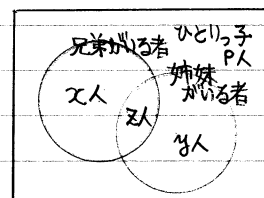 兄弟がいる者
ひとりっ子
P人
姉妹
がいる者
x人
z人
y人